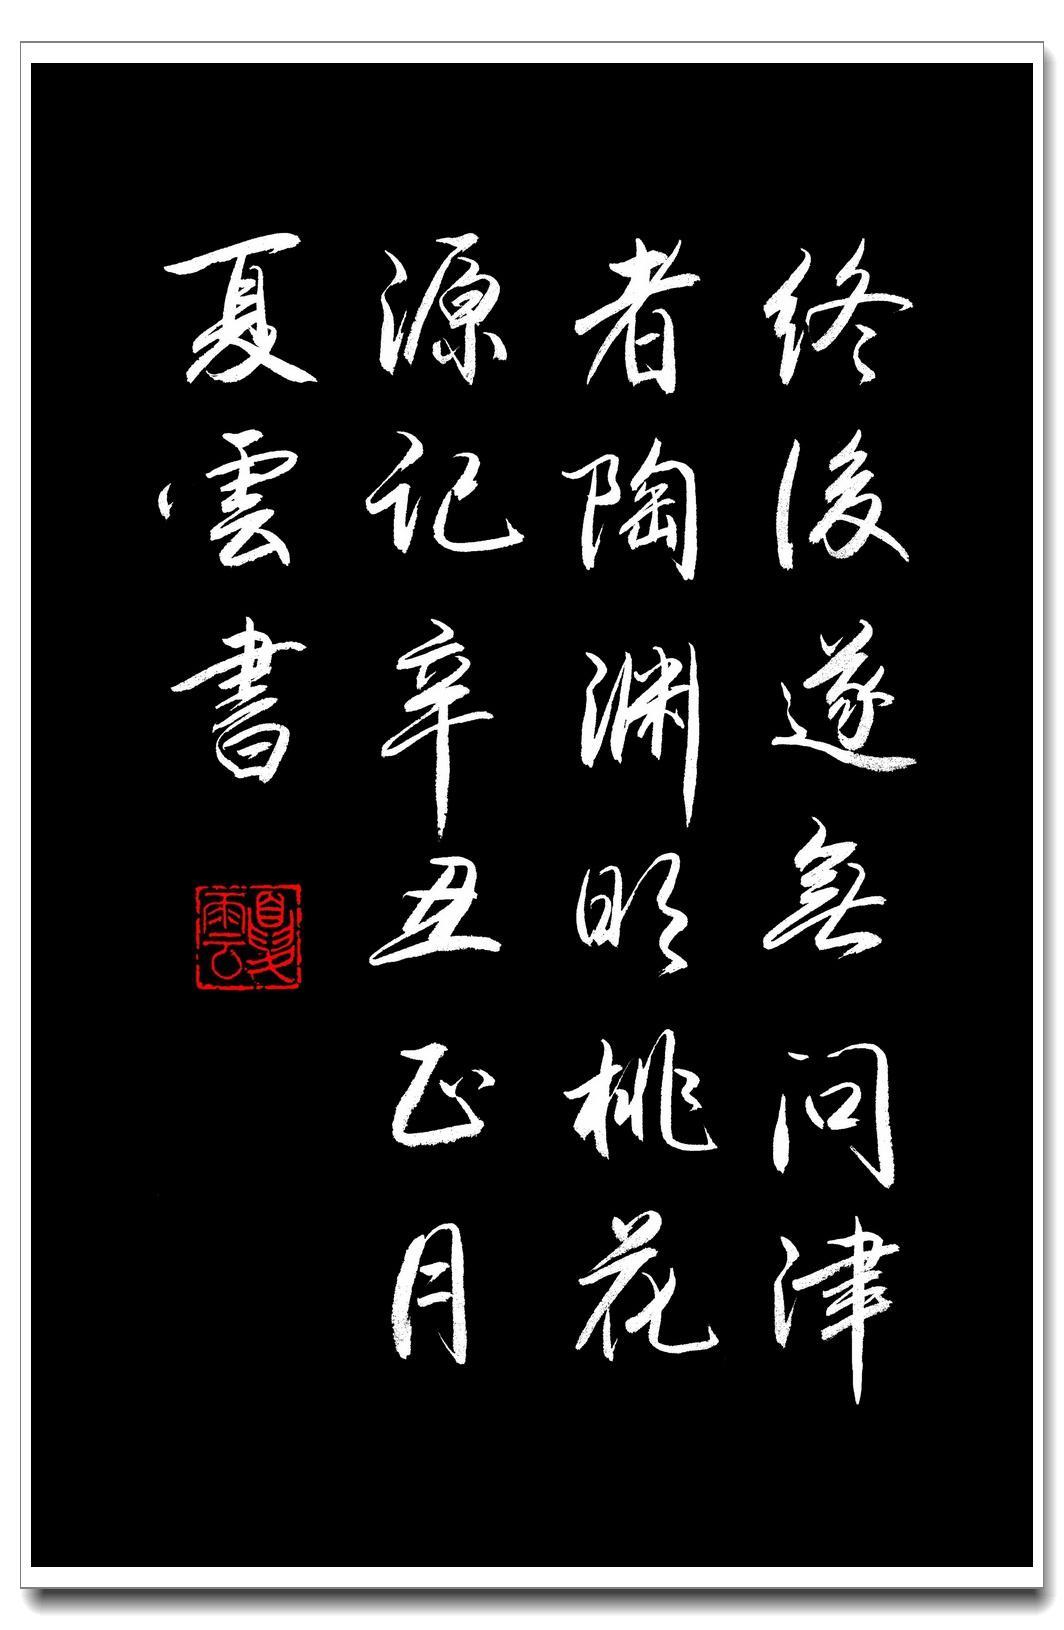 终後遂無问津
者陶渊明桃花
源记辛丑正月
夏雲書
夏雲